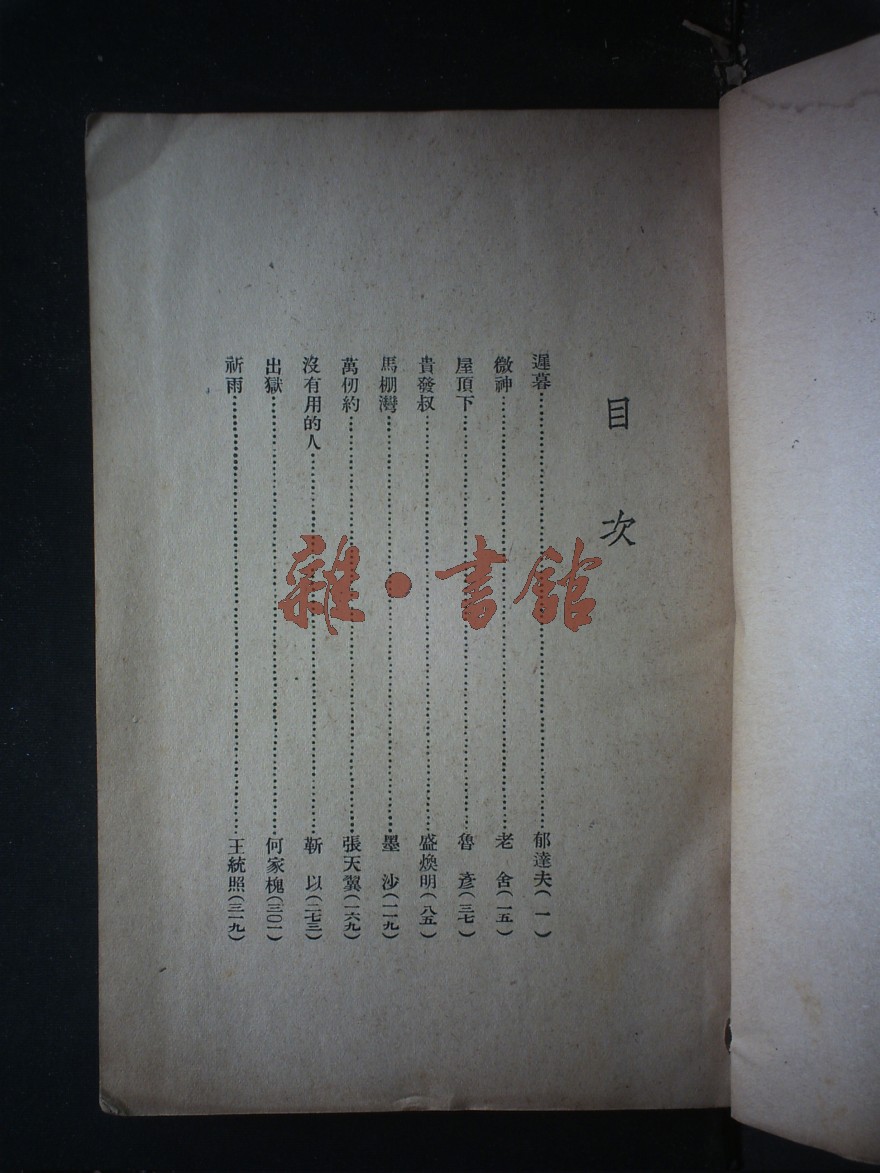 目次
遲暮……郁達夫(一)
微神……老舍(一五)
屋頂下……魯彥(三七)
貴發叔……盛煥明(八五)
馬棚灣……墨沙(一一九)
萬仞約……張天翼(一六九)
沒有用的人……靳以(二七三)
出獄……何家槐(三〇一)
祈雨……王統照(三一九)
雜·書館